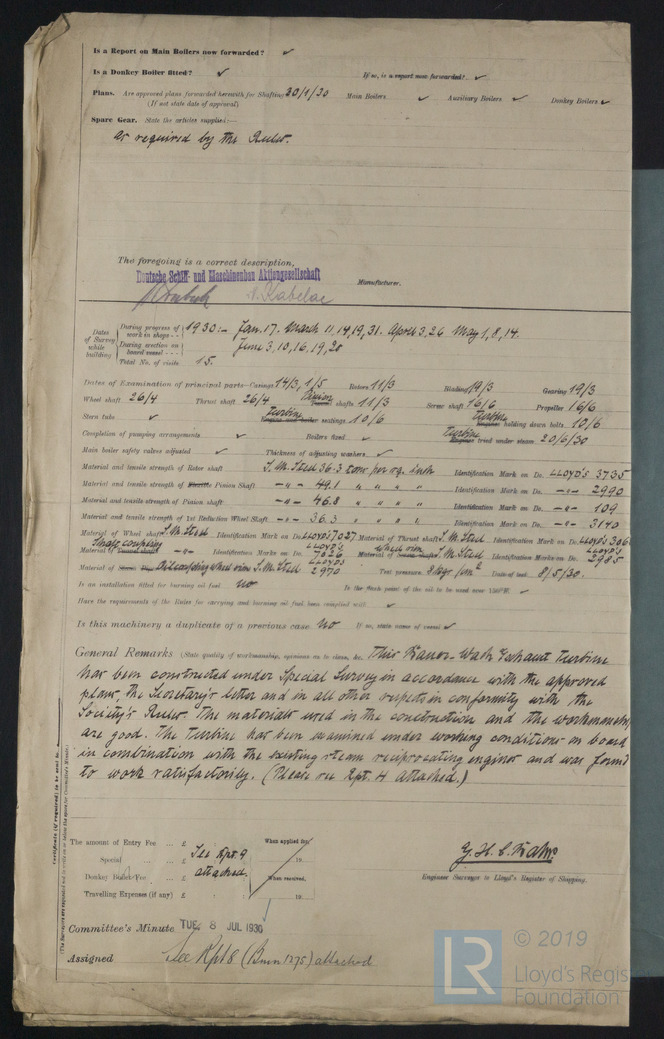 Is a Report on Main Boilers now forwarded? ✓
Is a Donkey Boiler fitted? ✓ If so, is a report now forwarded? ✓
Plans. Are approved plans forwarded herewith for Shafting 30/1/30 Main Boilers ✓ Auxiliary Boilers ✓ Donkey Boilers ✓
(If not state date of approval)
Spare Gear. State the articles supplied:—
As required by the Rules.
The foregoing is a correct description,
Deutsche Schiff- und Maschinenbau Aktiengesellschaft
Manufacturer.
Dates of Survey while building
During progress of work in shops - - 1930:- Jan. 17. March 11, 14, 19, 31. April 3, 26 May 1, 8, 14.
During erection on board vessel - - - June 3, 10, 16, 19, 20
Total No. of visits 15.
Dates of Examination of principal parts—Casings 14/3, 1/5 Rotors 11/3 Blading 19/3 Gearing 19/3
Wheel shaft 26/4 Thrust shaft 26/4 Pinion shafts 11/3 Screw shaft 16/6 Propeller 16/6
Stern tube ✓ Turbine seatings 10/6 Turbine holding down bolts 10/6
Completion of pumping arrangements ✓ Boilers fixed ✓ Turbine tried under steam 20/6/30
Main boiler safety valves adjusted ✓ Thickness of adjusting washers ✓
Material and tensile strength of Rotor shaft S.M. Steel 36.3 tons per sq. inch Identification Mark on Do. LLOYD'S 3735
Material and tensile strength of Pinion Shaft -"- 49.1 " " " " Identification Mark on Do. -"- 2990
Material and tensile strength of Pinion shaft -"- 46.8 " " " " Identification Mark on Do. -"- 109
Material and tensile strength of 1st Reduction Wheel Shaft -"- 36.3 " " " " Identification Mark on Do. -"- 3140
Material of Wheel shaft S.M. Steel Identification Mark on Do. LLOYD'S 7027 Material of Thrust shaft S.M. Steel Identification Mark on Do. LLOYD'S 306
Material of -"- Identification Marks on Do. LLOYD'S 7226 Material of Wheel rim S.M. Steel Identification Marks on Do. LLOYD'S 2985
Material of wheel rim S.M. Steel LLOYD'S 2970 Test pressure 8 Kgr/cm² Date of test 8/5/30.
Is an installation fitted for burning oil fuel No Is the flash point of the oil to be used over 150°F. ✓
Have the requirements of the Rules for carrying and burning oil fuel been complied with ✓
Is this machinery a duplicate of a previous case No If so, state name of vessel ✓
General Remarks (State quality of workmanship, opinions as to class, &c. This Bauer-Wach Exhaust Turbine
has been constructed under Special Survey in accordance with the approved
plans, the Secretary's letter and in all other respects in conformity with the
Society's Rules. The materials used in the construction and the workmanship
are good. The turbine has been examined under working conditions on board
in combination with the existing steam reciprocating engines and was found
to work satisfactorily. (Please see Rpt. 4 attached.)
Certificate (if required) to be sent to
(The Surveyors are requested not to write on or below the space for Committee's Minute.)
The amount of Entry Fee ... £ See Rpt. 9 When applied for,
Special ... £ attached. 19
Donkey Boiler Fee ... £ When received,
Travelling Expenses (if any) £ 19
Engineer Surveyor to Lloyd's Register of Shipping.
Committee's Minute TUE. 8 JUL 1930
Assigned See Rpt 8 (Bmn 1275) attached
LR © 2019
Lloyd's Regis
Foundation